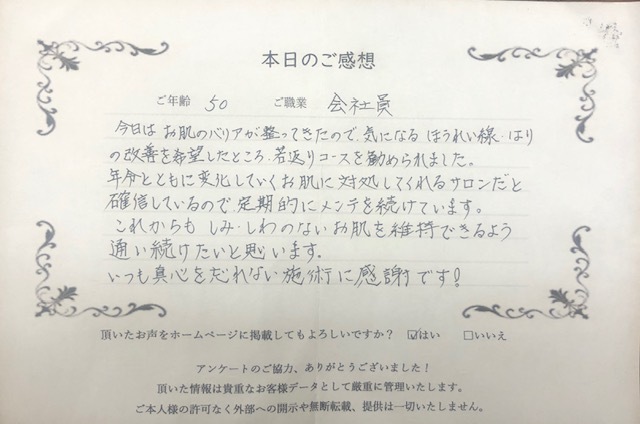 本日のご感想
ご年齢 50 ご職業 会社員
今日は お肌のバリアが整ってきたので、気になる ほうれい線・はり
の改善を希望したところ、若返りコースを勧められました。
年令とともに変化していくお肌に対処してくれるサロンだと
確信しているので、定期的にメンテを続けています。
これからも しみ・しわのないお肌を維持できるよう
通い続けたいと思います。
いつも真心を忘れない施術に感謝です!
頂いたお声をホームページに掲載してもよろしいですか? ☑はい □いいえ
アンケートのご協力、ありがとうございました!
頂いた情報は貴重なお客様データとして厳重に管理いたします。
ご本人様の許可なく外部への開示や無断転載、提供は一切いたしません。